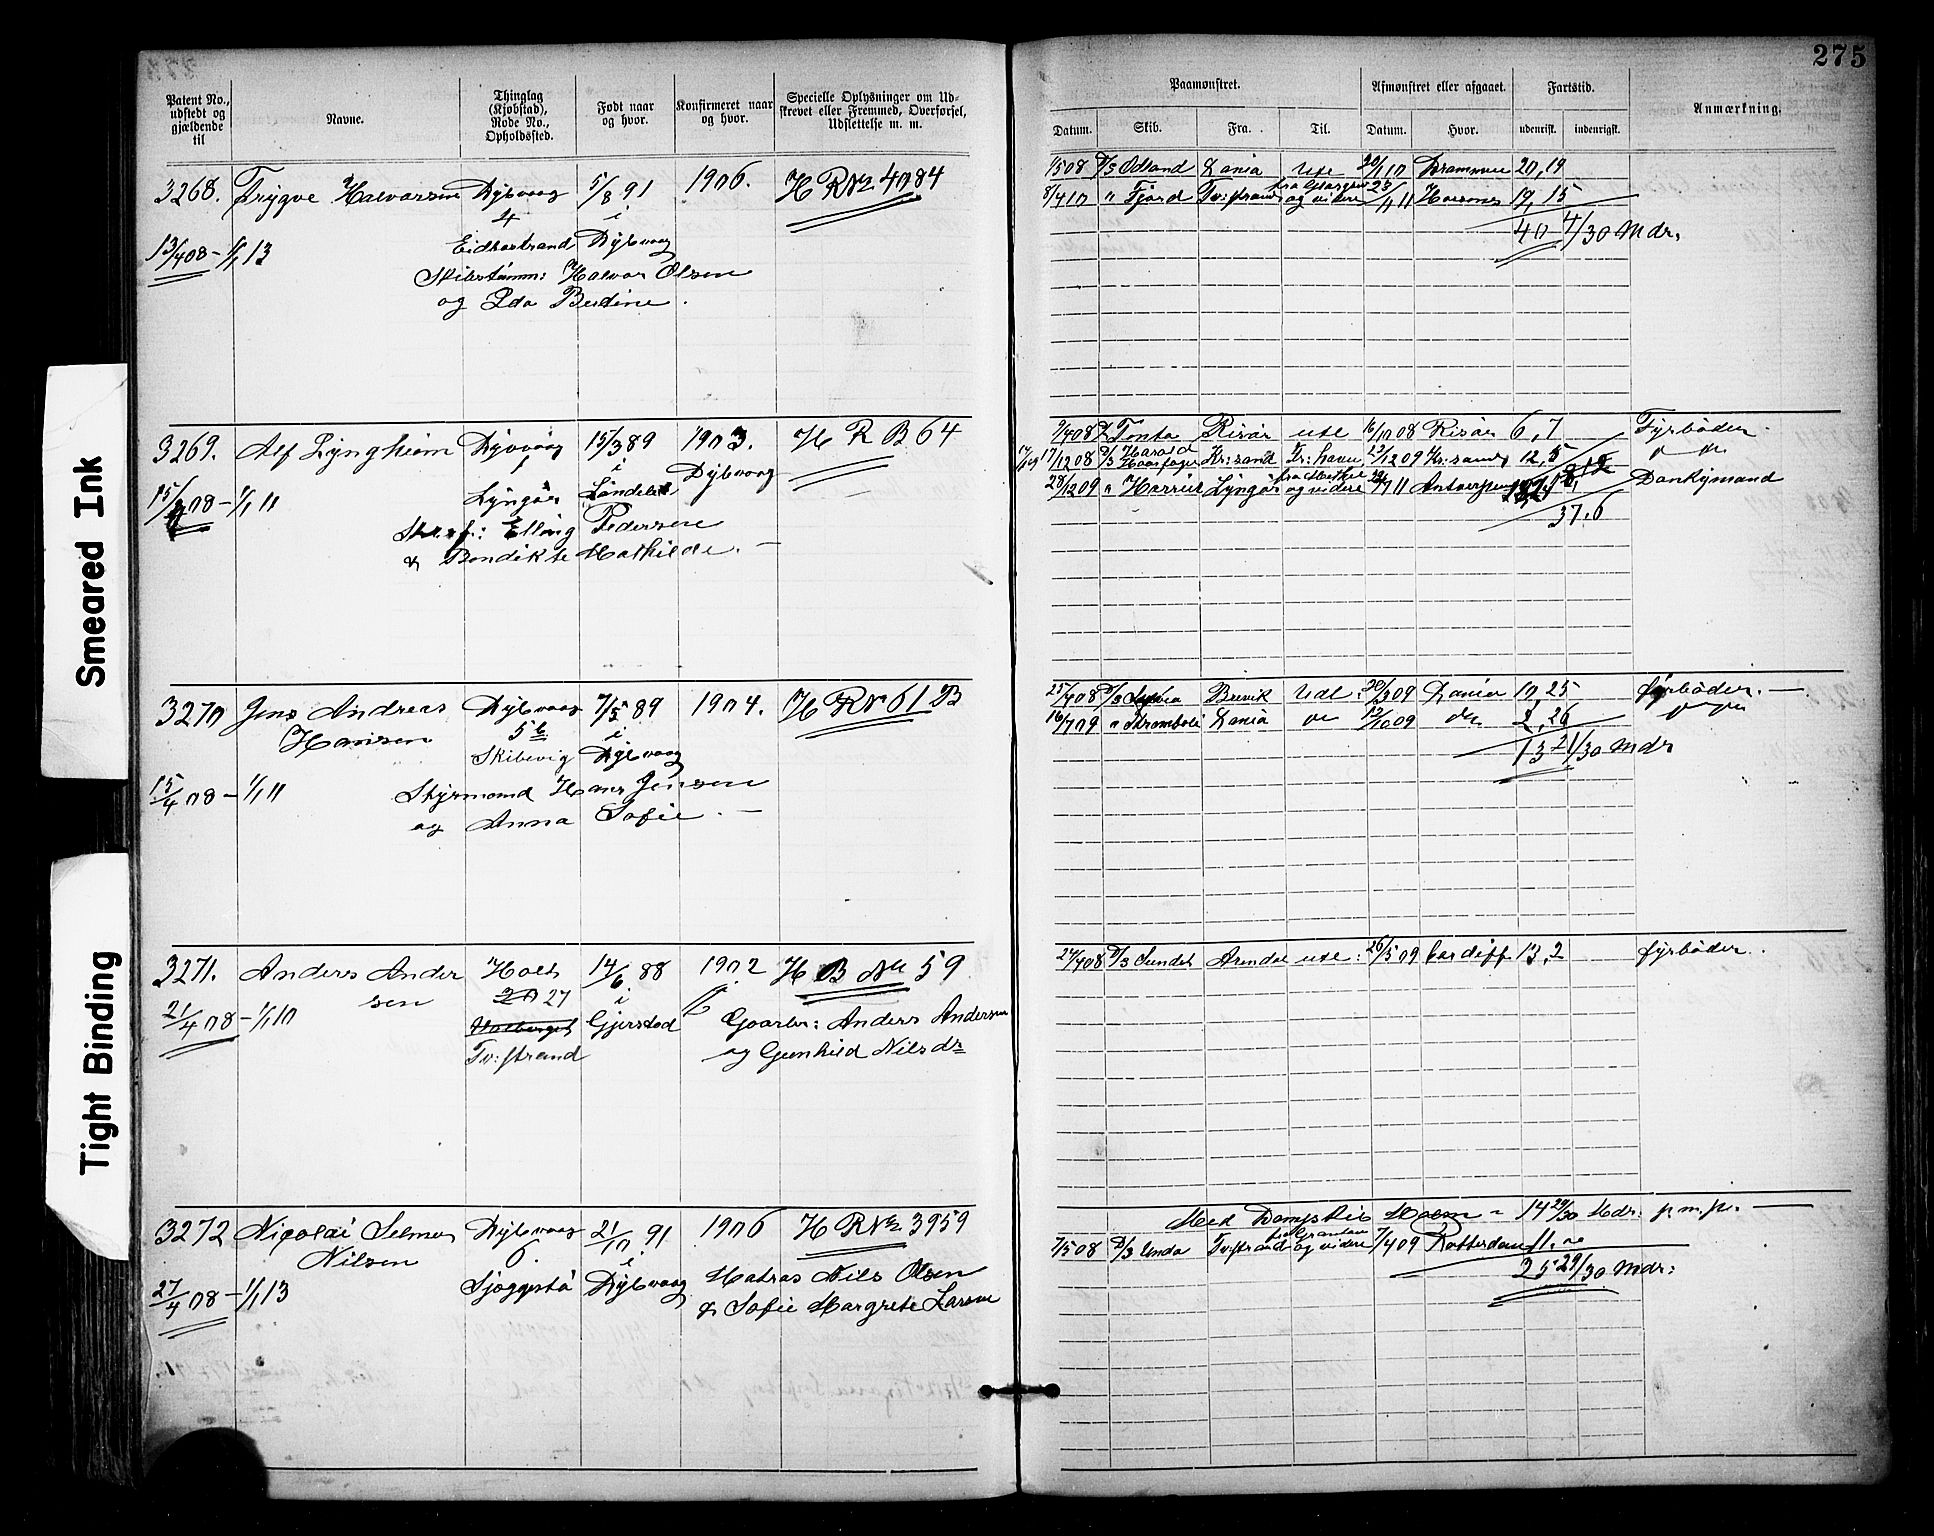 275
Patent No., udstedt og gjældende til
Navne.
Thinglag (Kjøbstad), Rode No., Opholdssted.
Født naar og hvor.
Konfirmeret naar og hvor.
Specielle Oplysninger om Udskrevet eller Fremmed, Overførsel, Udslettelse m. m.
Paamønstret.
Afmønstret eller afgaaet.
Fartstid.
Anmærkning.
Datum.
Skib.
Fra.
Til.
Datum.
Hvor.
udenrikst.
indenrigst.
3268. Trygve Halvorsen Dybvaag 5/8 91 1906. H R No 4084
4 i
13/4 08 - 1/1 13 Eidbostrand Dybvaag
Skibstømm: Halvor Olsen
og Ida Berdine.
1/5 08 D/S Odland Dania Ude 20/1 10 Drammen 20, 19
8/4 10 " Fjord Tv:strand og videre 11 19, 15
40 4/30 Mdr.
3269. Alf Lyngheim Dybvaag 15/3 89 1903. H R B 64
1 i Dybvaag
15/4 08 - 1/1 11 Lyngør
Elling Pedersen
& Bendikte Mathilde.
9/4 08 Tonto Risør ude 16/10 08 Risør 6, 7 Fyrbøder.
17/12 08 D/S Harald Haarfager Kr:sand Kr:havn 12/12 09 Kr:sand 12, 5 do
28/12 09 " Lyngør og videre 11 Antwerpen Donkeymand
37.6
3270 Jens Andreas Dybvaag 7/5 89 1904. H R No 61 B
Hansen 5 b i
Skibevig Dybvaag
15/4 08 - 1/1 11 Styrmand Hans Jensen
og Anna Sofie.
25/4 08 D/S Sylvia Brevik Udl: 20/3 09 Dania 10, 25 fyrbøder.
16/7 09 " Stromboli Dania do 12/10 09 do 2, 26
13 21/30 Mdr
3271. Anders Ander Holt 14/6 88 1902 H B No 59
sen 20 27 i
21/4 08 - 1/1 10 Gjerstad Gaarbr: Anders Andersen
Tv:strand og Gunhild Nilsdr
27/4 08 D/S Sundet Arendal ude: 26/5 09 Cardiff 13, 2 fyrbøder.
3272 Nicolai Selmer Dybvaag 21/10 91 1906 H R No 3959
Nilsen 6. i
27/4 08 - 1/1 13 Sjøggestø Dybvaag Matros Nils Olsen
& Sofie Margrete Larsen
Med Dampskib - 14 29/30 Mdr. p.m.p.
7/5 08 D/S Unda Tv:strand og videre 7/4 09 Rotterdam 11, 0
25 29/30 Mdr:
Smeared Ink
Tight Binding